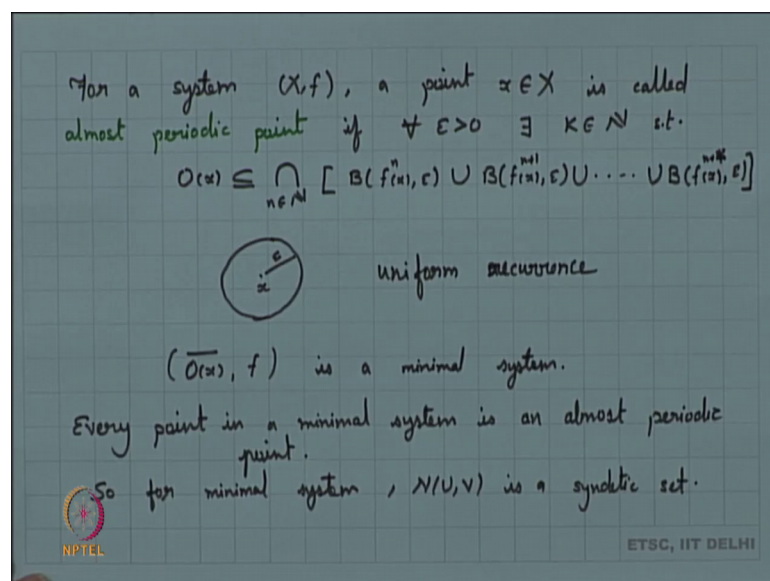 For a system (X, f), a point x ∈ X is called
almost periodic point if ∀ ε>0 ∃ K ∈ N s.t.
O(x) ⊆ ⋂_{n∈N} [ B(f^n(x), ε) ∪ B(f^{n+1}(x), ε) ∪ ..... ∪ B(f^{n+k}(x), ε)]
ε
x
uniform recurrence
(\overline{O(x)}, f) is a minimal system.
Every point in a minimal system is an almost periodic
point.
So for minimal system, N(U,V) is a syndetic set.
NPTEL
ETSC, IIT DELHI